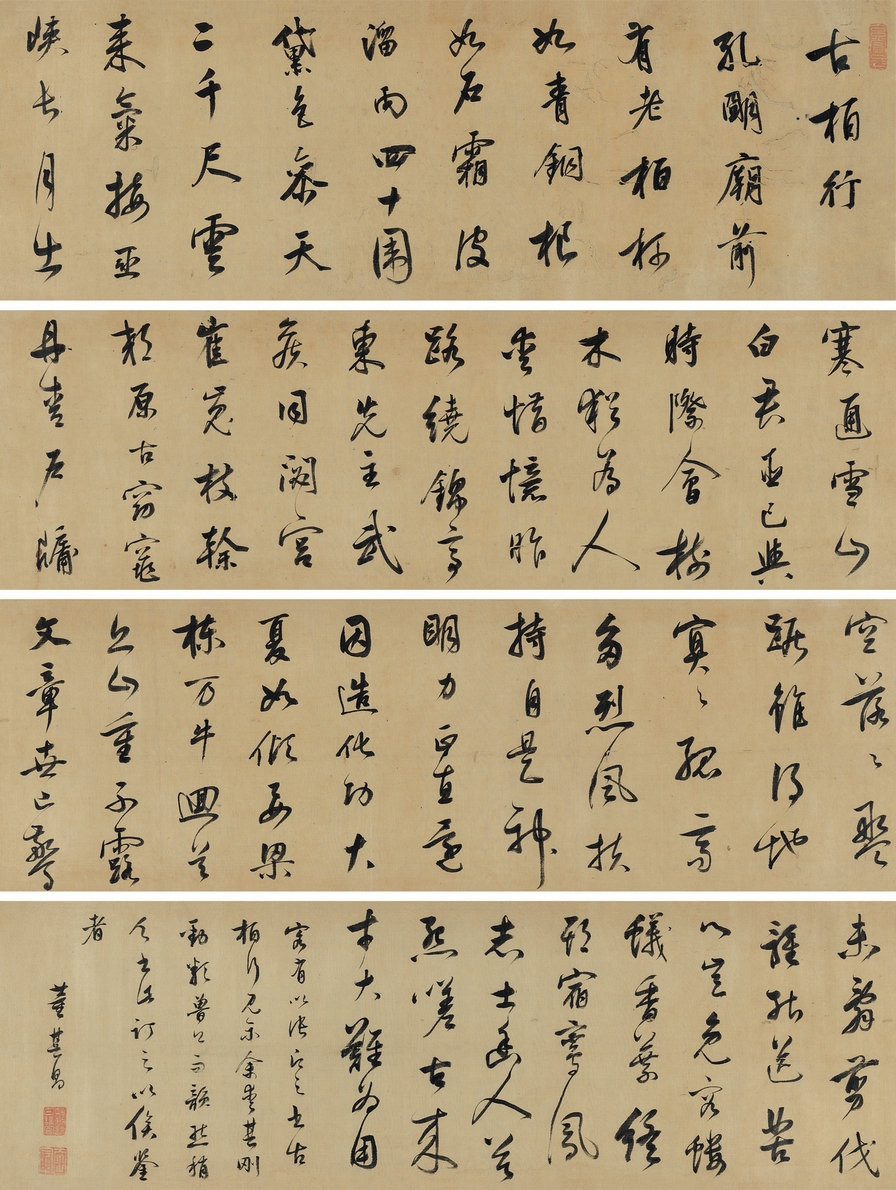 古柏行
孔朙廟前
有老柏柯
如青銅根
如石霜皮
溜雨四十圍
黛色參天
二千尺雲
来氣接巫
峽長月出
寒通雪山
白君臣已與
時際會樹
木猶為人
愛惜憶昨
路繞錦亭
東先主武
侯同閟宮
崔嵬枝幹
郊原古窈窕
丹青戶牖
空落〻盤
踞雖得地
冥〻孤高
多烈風扶
持自是神
朙力正直
因造化功大
夏如傾要梁
棟万牛廻首
丘山重不露
文章世已驚
未辭剪伐
誰能送苦
心豈免容螻
蟻香葉終
宿鸞鳳
志士幽人莫
怨嗟古来
才大難為用
客有以張即之書古
柏行見示余愛其剛
勁類魯公而韻致稍
書訂之以俟鑒
者
董其昌